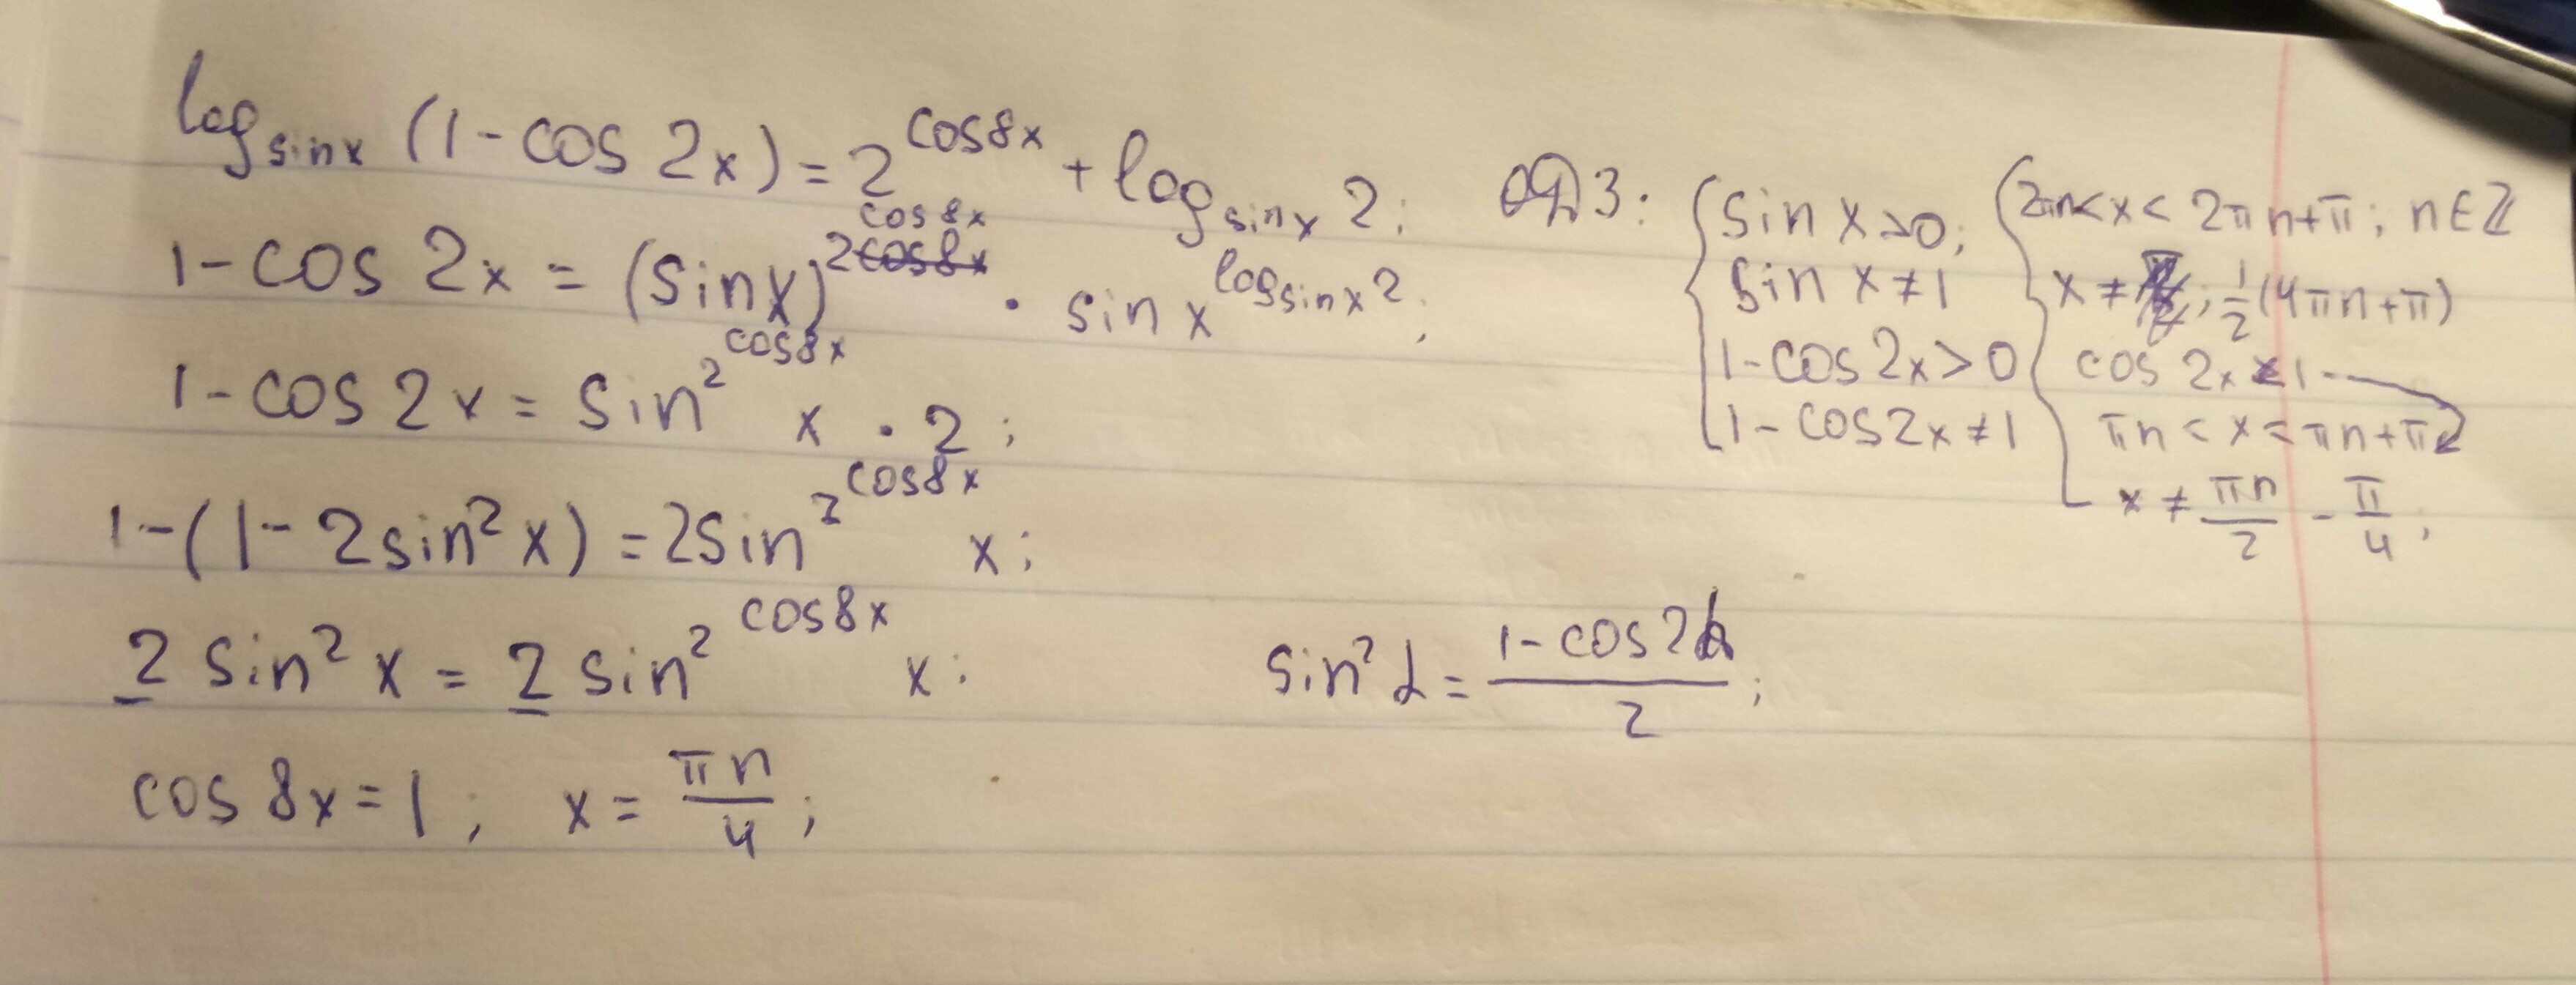 log_{sin x} (1 - cos 2x) = 2^{cos 8x} + log_{sin x} 2;
1 - cos 2x = (sin x)^{2^{cos 8x}} · sin x^{log_{sin x} 2};
1 - cos 2x = sin^{2^{cos 8x}} x · 2;
1 - (1 - 2 sin² x) = 2 sin^{2^{cos 8x}} x;
2 sin² x = 2 sin^{2^{cos 8x}} x;
cos 8x = 1; x = πn/4;
ОДЗ:
{ sin x > 0;
sin x ≠ 1
1 - cos 2x > 0
1 - cos 2x ≠ 1
{ 2πn < x < 2πn + π; n ∈ Z
x ≠ ; 1/2 (4πn + π)
cos 2x < 1
πn < x < πn + π
x ≠ πn/2 - π/4;
sin² α = (1 - cos 2α)/2;